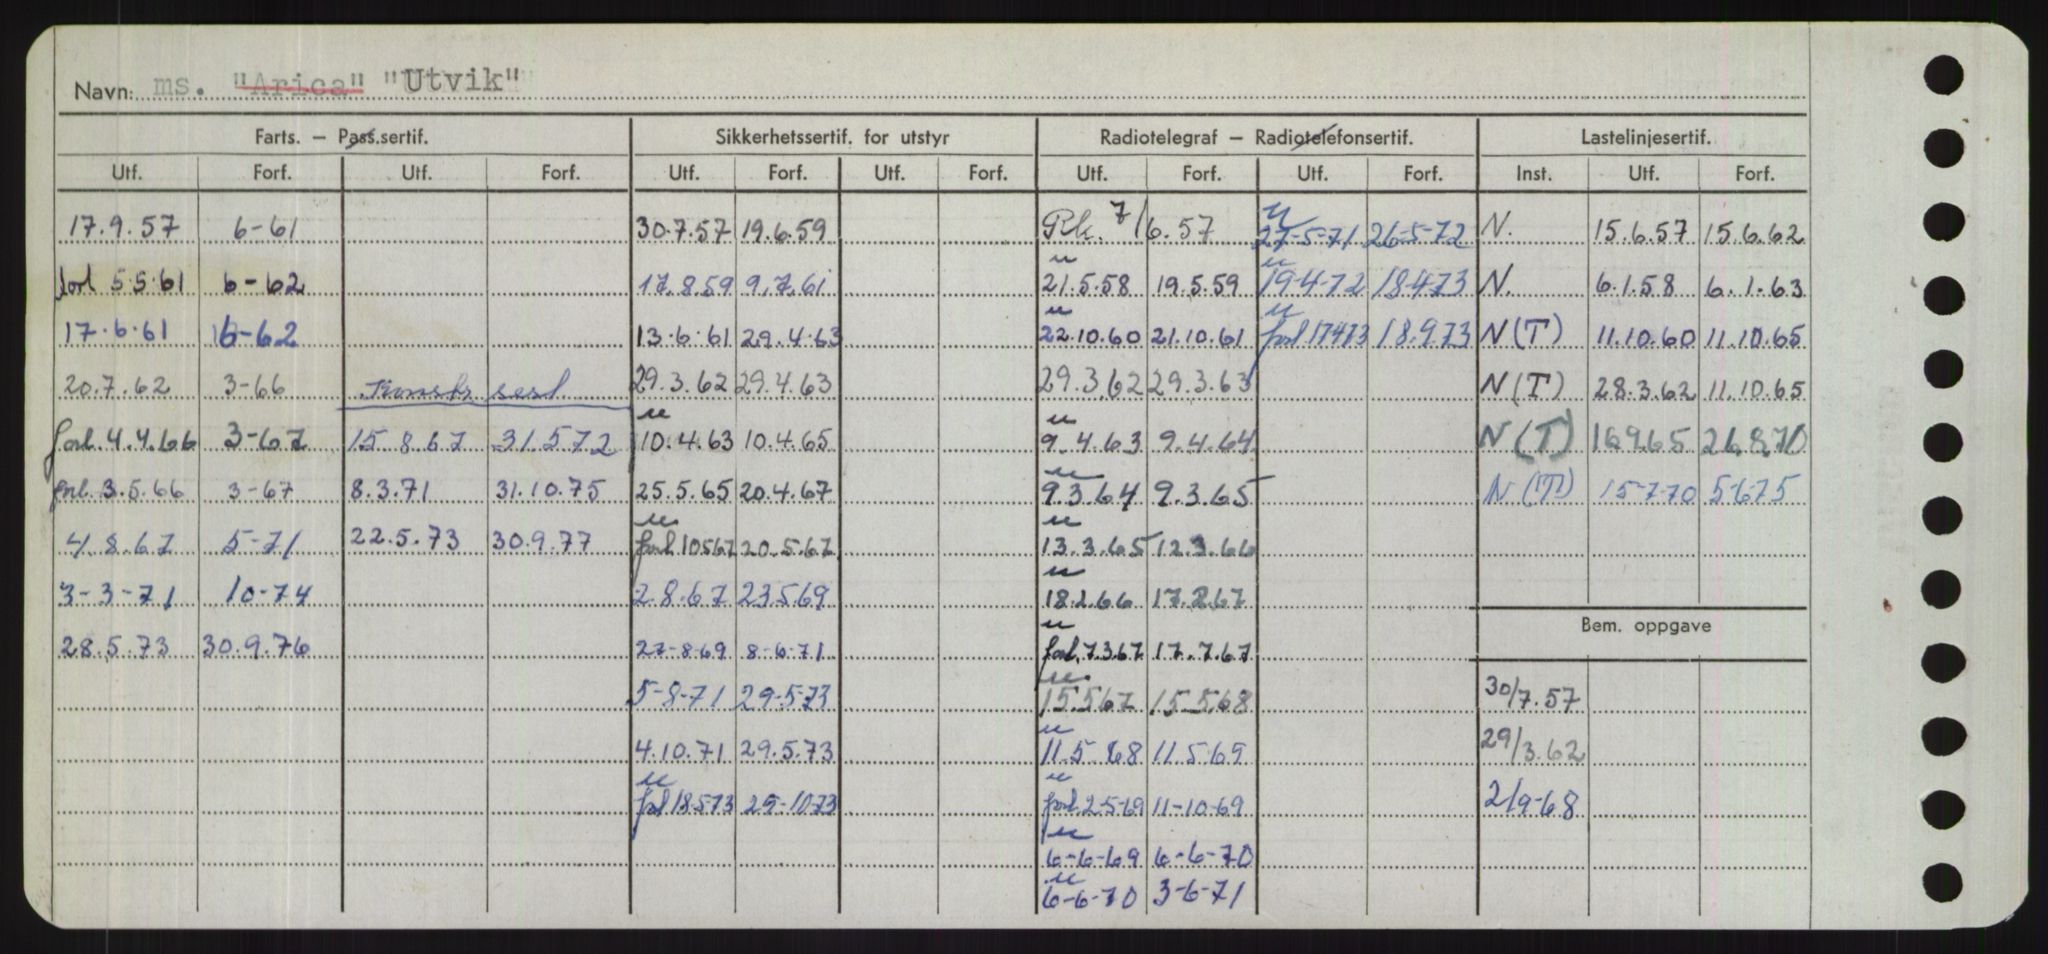 Navn: ms. "Arica" "Utvik"
Farts. — Pass.sertif. Sikkerhetssertif. for utstyr Radiotelegraf — Radiotelefonsertif. Lastelinjesertif.
Utf. Forf. Utf. Forf. Utf. Forf. Utf. Forf. Utf. Forf. Utf. Forf. Inst. Utf. Forf.
17.9.57 6-61 30.7.57 19.6.59 7/6.57 27-5-71 26-5-72 N. 15.6.57 15.6.62
forl 5.5.61 6-62 17.8.59 9.7.61 21.5.58 19.5.59 19-4-72 18-4-73 N. 6.1.58 6.1.63
17.6.61 6-62 13.6.61 29.4.63 22.10.60 21.10.61 forl 17473 18.9.73 N(T) 11.10.60 11.10.65
20.7.62 3-66 Konstr. sert. 29.3.62 29.4.63 29.3.62 29.3.63 N(T) 28.3.62 11.10.65
forl. 4.4.66 3-67 15.8.67 31.5.72 10.4.63 10.4.65 9.4.63 9.4.64 N(T) 16.9.65 26.8.70
forl. 3.5.66 3-67 8.3.71 31.10.75 25.5.65 20.4.67 9.3.64 9.3.65 N(T) 15-7-70 5-6-75
4.8.67 5-71 22.5.73 30.9.77 forl. 10567 20.5.67 13.3.65 12.3.66
3-3-71 10-74 2.8.67 23.5.69 18.2.66 17.2.67
Bem. oppgave
28.5.73 30.9.76 27-8-69 8-6-71 forl. 7.3.67 17.7.67
5-8-71 29-5-73 15.5.67 15.5.68 30/7.57
4.10.71 29.5.73 11.5.68 11.5.69 29/3.62
forl 18573 29-10-73 forl. 2-5-69 11-10-69 2/9-68
6-6-69 6-6-70
6-6-70 3-6-71